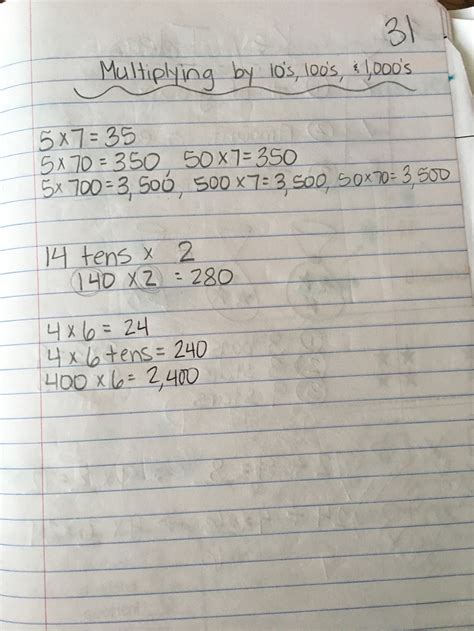 31
Multiplying by 10's, 100's, & 1,000's
5 x 7 = 35
5 x 70 = 350, 50 x 7 = 350
5 x 700 = 3,500, 500 x 7 = 3,500, 50 x 70 = 3,500
14 tens x 2
140 x 2 = 280
4 x 6 = 24
4 x 6 tens = 240
400 x 6 = 2,400